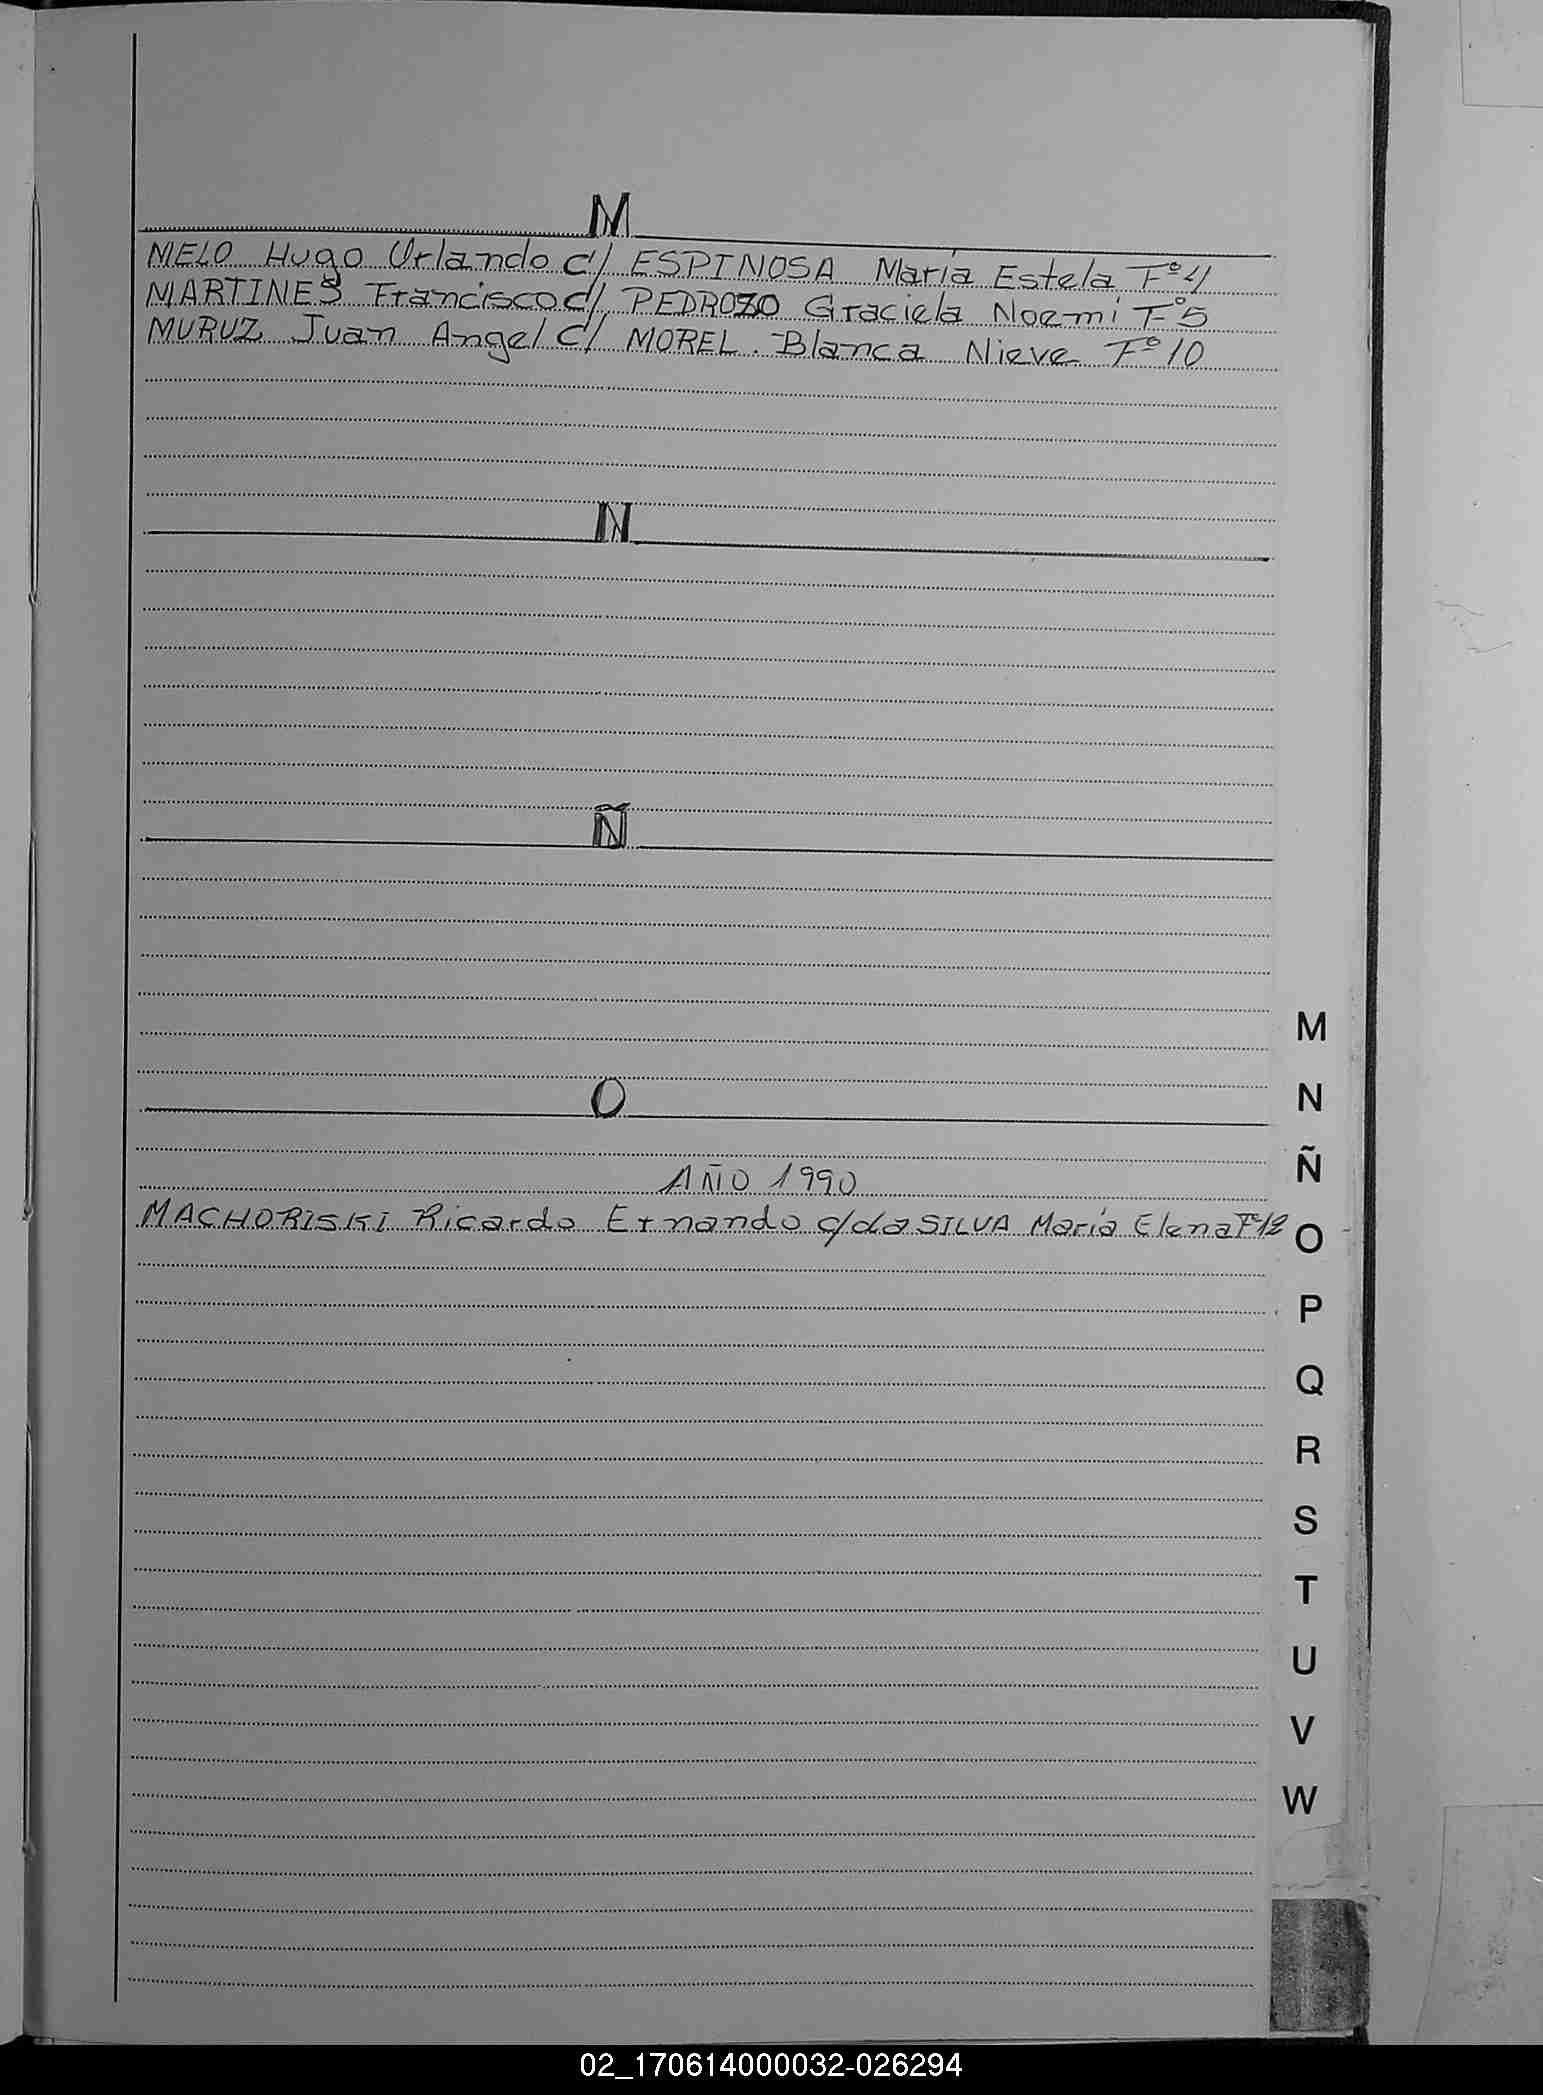 M
MELO Hugo Orlando c/ ESPINOSA María Estela Fº 4
MARTINES Francisco c/ PEDROZO Graciela Noemí Fº 5
MURUZ Juan Angel c/ MOREL. Blanca Nieve Fº 10
N
Ñ
O
AÑO 1990
MACHORISKI Ricardo Ernando c/da SILVA María Elena Fº 12
M
N
Ñ
O
P
Q
R
S
T
U
V
W
02_170614000032-026294